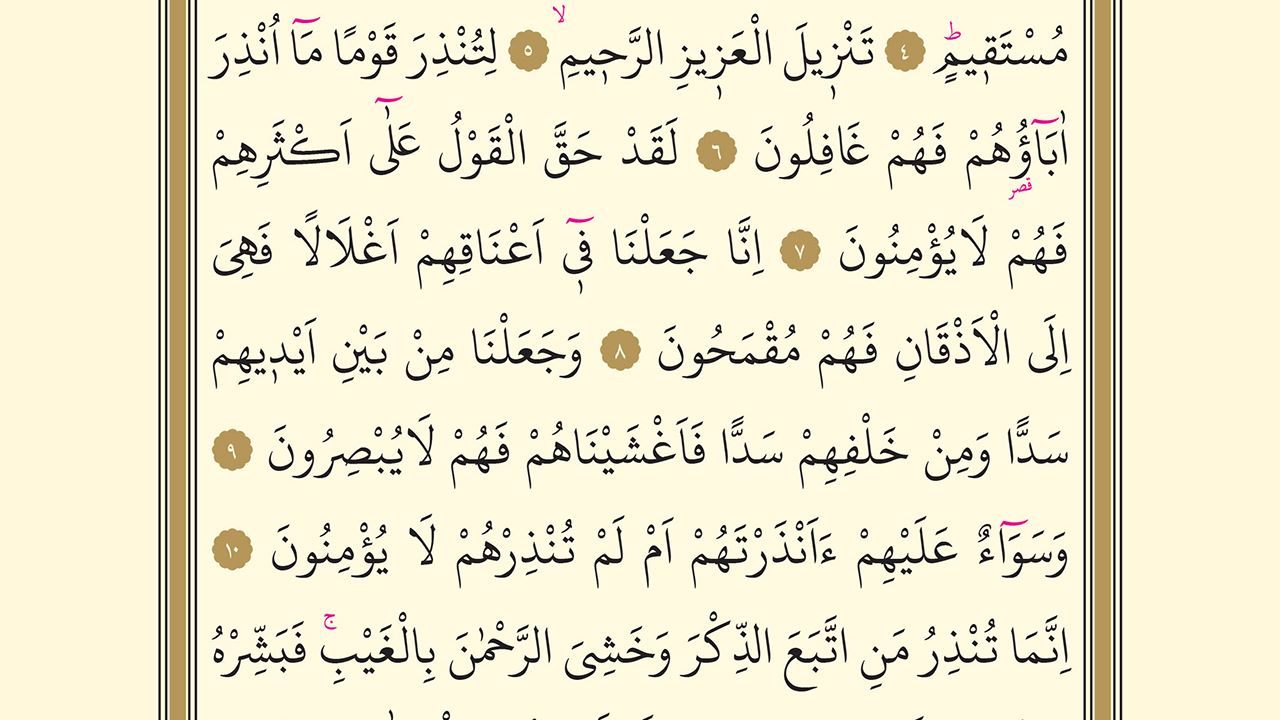 مُسْتَقٖيمٍۜ ﴿٤﴾ تَنْزٖيلَ الْعَزٖيزِ الرَّحٖيمِۙ ﴿٥﴾ لِتُنْذِرَ قَوْمًا مَٓا اُنْذِرَ
اٰبَٓاؤُ۬هُمْ فَهُمْ غَافِلُونَ ﴿٦﴾ لَقَدْ حَقَّ الْقَوْلُ عَلٰٓى اَكْثَرِهِمْ
فَهُمْ لَا يُؤْمِنُونَ ﴿٧﴾ اِنَّا جَعَلْنَا فٖٓي اَعْنَاقِهِمْ اَغْلَالًا فَهِيَ
اِلَى الْاَذْقَانِ فَهُمْ مُقْمَحُونَ ﴿٨﴾ وَجَعَلْنَا مِنْ بَيْنِ اَيْدٖيهِمْ
سَدًّا وَمِنْ خَلْفِهِمْ سَدًّا فَاَغْشَيْنَاهُمْ فَهُمْ لَا يُبْصِرُونَ ﴿٩﴾
وَسَوَٓاءٌ عَلَيْهِمْ ءَاَنْذَرْتَهُمْ اَمْ لَمْ تُنْذِرْهُمْ لَا يُؤْمِنُونَ ﴿١٠﴾
اِنَّمَا تُنْذِرُ مَنِ اتَّبَعَ الذِّكْرَ وَخَشِيَ الرَّحْمٰنَ بِالْغَيْبِۚ فَبَشِّرْهُ